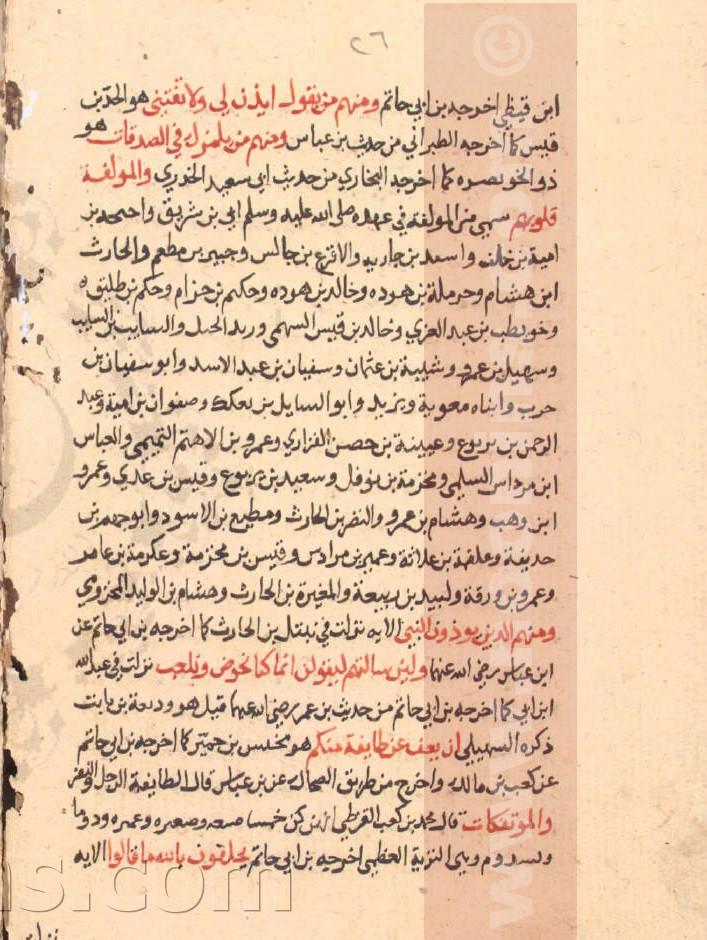 ٢٦
ابن قيظي اخرجه بن ابي حاتم ومنهم من يقول ايذن لي ولا تفتني هو الجد بن
قيس كما اخرجه الطبراني من حديث بن عباس ومنهم من يلمزك في الصدقات هو
ذو الخويصره كما اخرجه البخاري من حديث ابي سعيد الخدري والمولفة
قلوبهم سمي من المولفة في عهده صلى الله عليه وسلم ابي بن شريق واحيحه بن
امية بن خلف واسد بن جاريه والاقرع بن حابس وجبير بن مطعم والحارث
ابن هشام وحرملة بن هوده وخالد بن هوده وحكيم بن حزام وحكم بن طليق
وحويطب بن عبد العزي وخالد بن قيس السهمي وزيد الخيل والسايب بن السايب
وسهيل بن عمرو وشيبة بن عثمان وسفيان بن عبد الاسد وابو سفيان بن
حرب وابناه معوية ويزيد وابو السنابل بن بعكك وصفوان بن امية وعبد
الرحمن بن يربوع وعيينة بن حصن الفزاري وعمرو بن الاهتم التميمي والعباس
ابن مرداس السلمي ومخرمة بن نوفل وسعيد بن يربوع وقيس بن عدي وعمرو
ابن وهب وهشام بن عمرو والنضر بن الحارث ومطيع بن الاسود وابو جهم بن
حذيفة وعلقمة بن علاثة وعمير بن مرداس وقيس بن مخرمة وعكرمة بن عامر
وعمرو بن ورقة ولبيد بن ربيعة والمغيرة بن الحارث وهشام بن الوليد المخزومي
ومنهم الذين يوذون النبي الايه نزلت في نبتل بن الحارث كما اخرجه بن ابي حاتم عن
ابن عباس رضي الله عنهما ولين سالتهم ليقولن انما كنا نخوض ونلعب نزلت في عبد الله
ابن ابي كما اخرجه بن ابي حاتم من حديث بن عمر رضي الله عنهما قيل هو وديعة بن ثابت
ذكره السهيلي ان يعف عن طايفة منكم هو مخشي بن حمير كما اخرجه بن ابي حاتم
عن كعب بن مالك واخرج من طريق الضحاك عن بن عباس قال الطايفة الرجل والنفر
والموتفكات قال محمد بن كعب القرظي كن خمسا وصعره وعمره ودوما
وسدوم وهي القرية العظمى اخرجه بن ابي حاتم يحلفون بالله ما قالوا الايه